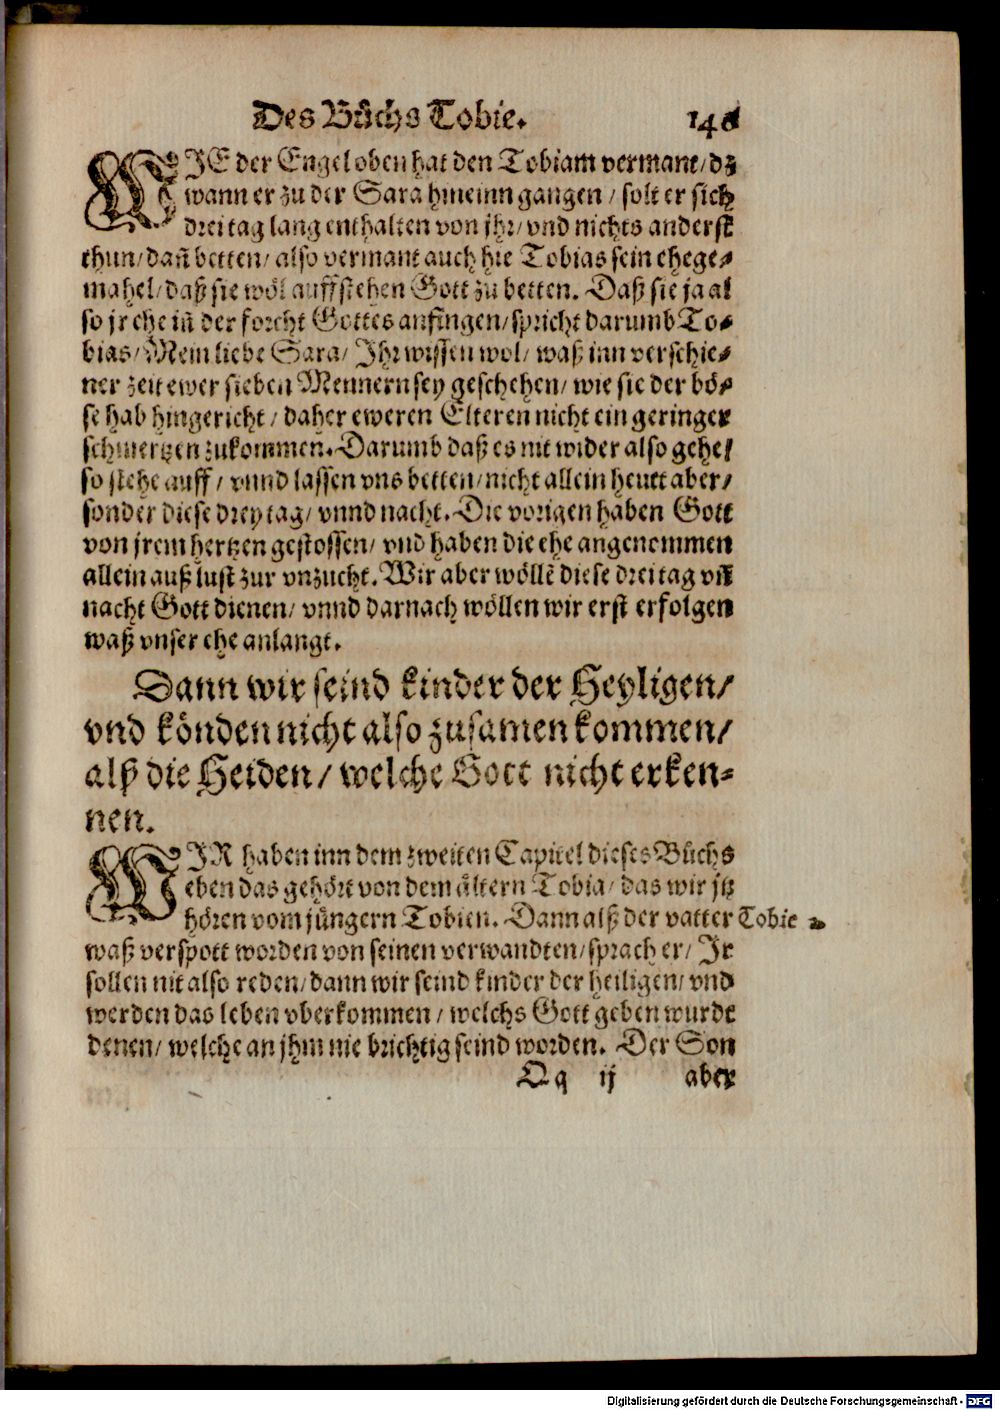 Des Bůchs Tobie.
WIE der Engel oben hat den Tobiam vermant/ dz
wann er zu der Sara hineinn gangen / solt er sich
drei tag lang enthalten von jhr/ vnd nichts anderst
thun/ dañ betten/ also vermant auch hie Tobias sein ehege⸗
mahel/ daß sie wöl auffstehen Gott zu betten. Daß sie ja al
so jr ehe iñ der forcht Gottes anfingen/ spricht darumb To⸗
bias/ Mein liebe Sara/ Ihr wissen wol/ waß inn verschie⸗
ner zeit ewer sieben Mennern sey geschehen/ wie sie der bö⸗
se hab hingericht / daher eweren Elteren nicht ein geringer
schmertzen zukommen. Darumb daß es nit wider also gehe/
so stehe auff / vnnd lassen vns betten/ nicht allein heutt aber/
sonder diese drey tag/ vnnd nacht. Die vorigen haben Gott
von jrem hertzen gestossen/ vnd haben die ehe angenommen
allein auß lust zur vnzucht. Wir aber wöllē diese drei tag vñ
nacht Gott dienen/ vnnd darnach wöllen wir erst erfolgen
waß vnser ehe anlangt.
Dann wir seind kinder der Heyligen/
vnd könden nicht also zusamen kommen/
alß die Heiden / welche Gott nicht erken⸗
nen.
WIR haben inn dem zweiten Capitel dieses Bůchs
eben das gehört von dem ältern Tobia/ das wir jtz
hören vom jüngern Tobien. Dann alß der vatter Tobie 2.
waß verspott worden von seinen verwandten/ sprach er/ Ir
sollen nit also reden/ dann wir seind kinder der heiligen/ vnd
werden das leben vberkommen / welchs Gott geben wurde
denen/ welche an jhm nie brichtig seind worden. Der Son
Qq ij aber
Digitalisierung gefördert durch die Deutsche Forschungsgemeinschaft - DFG